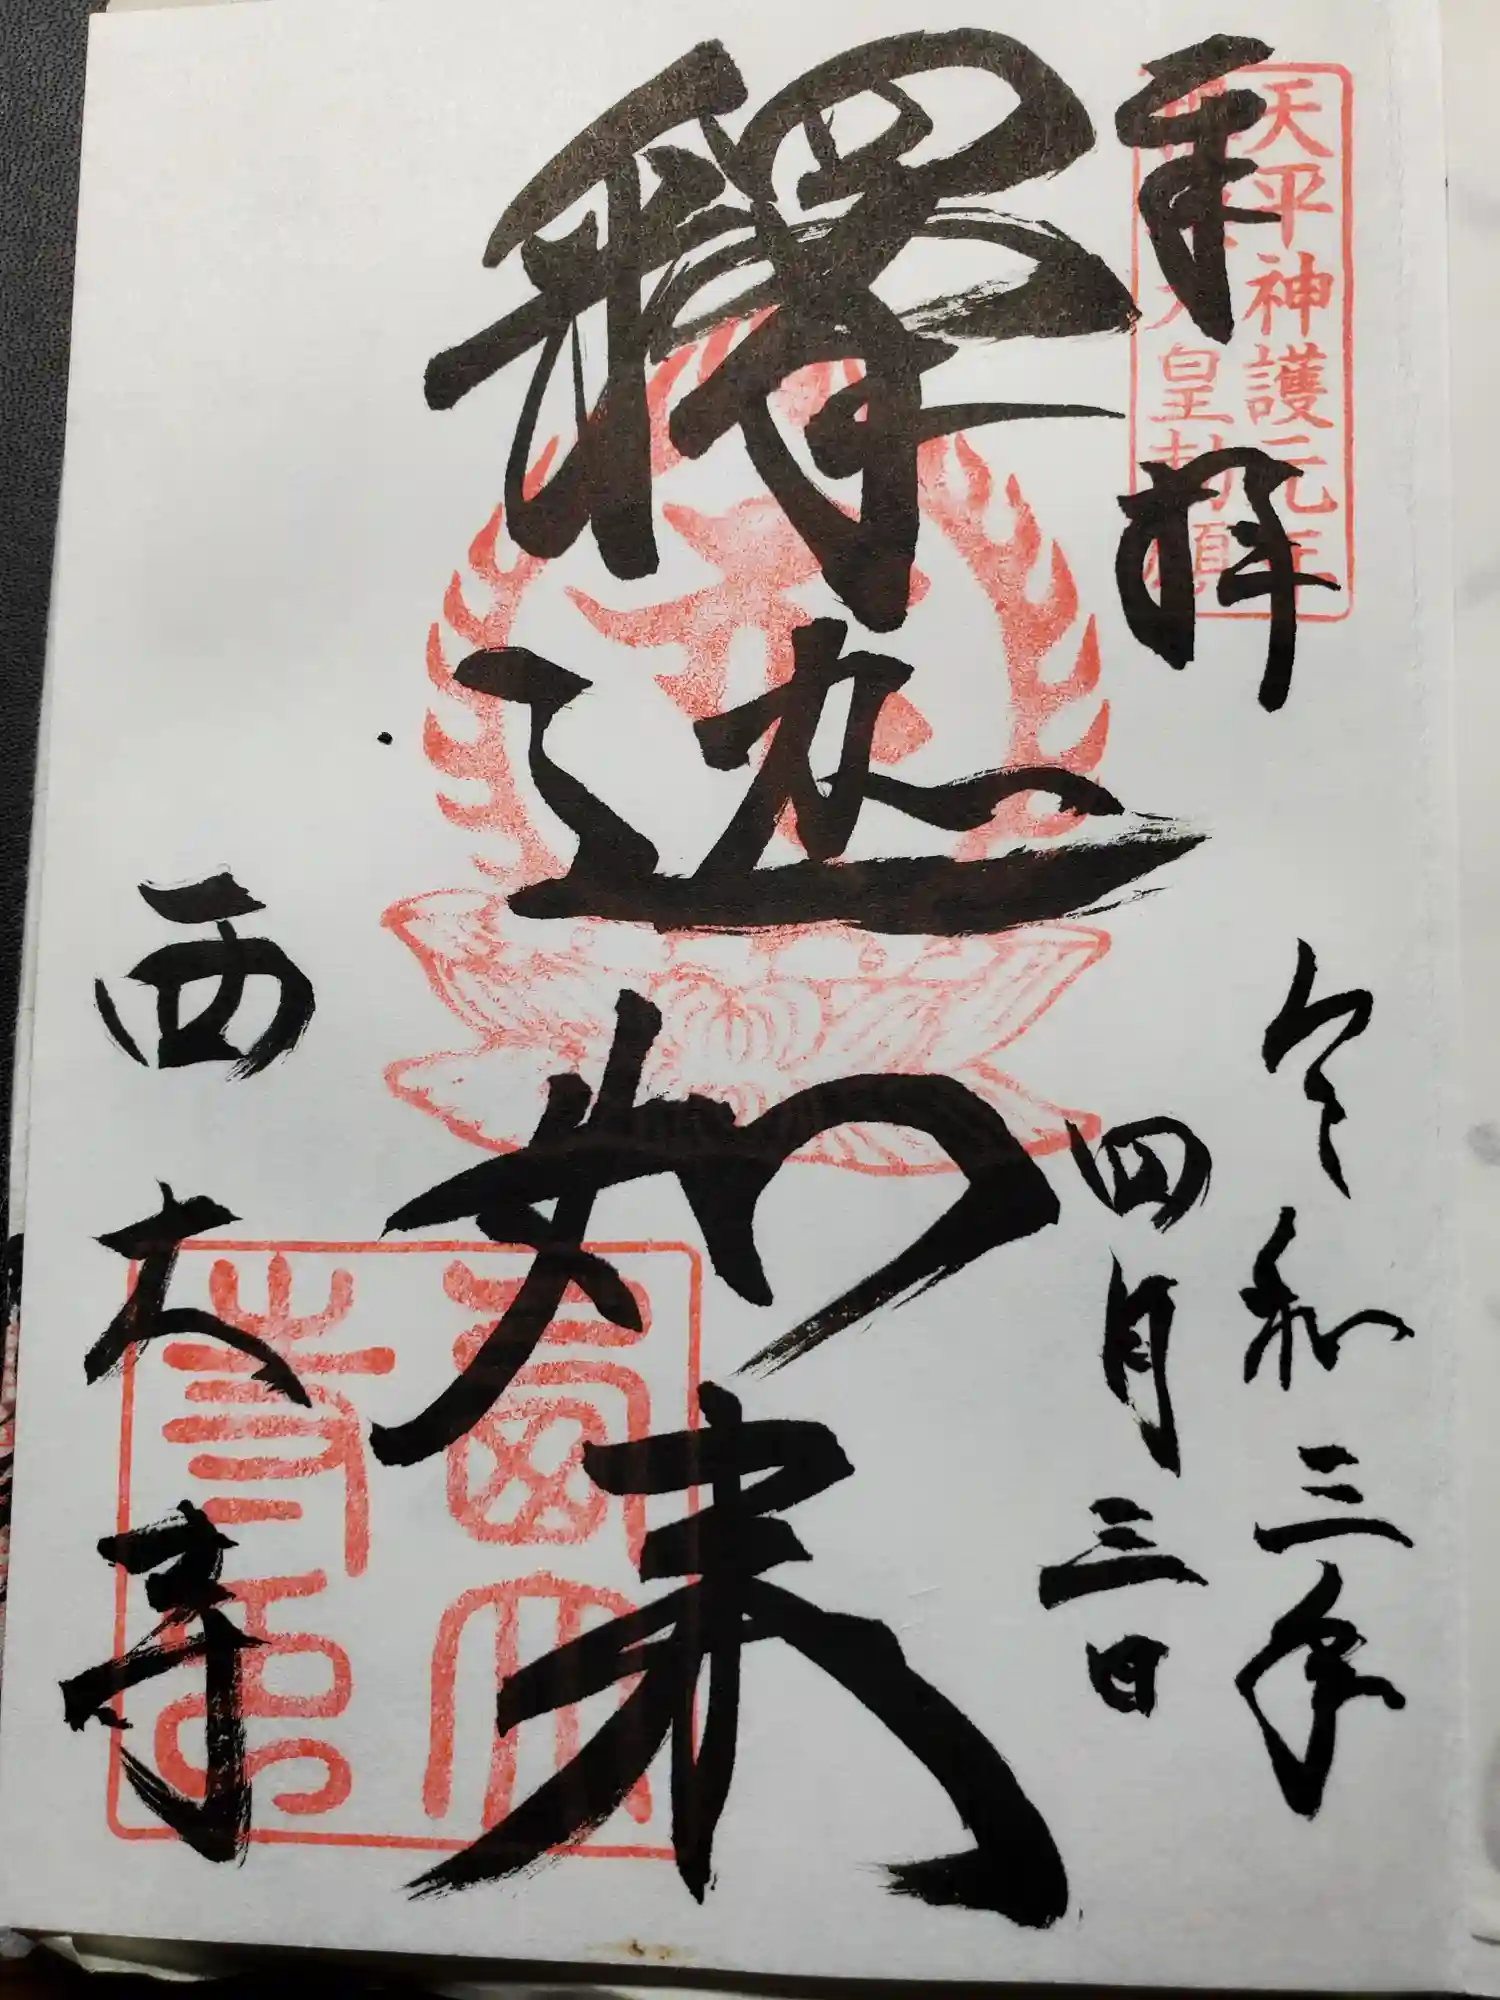 奉拝
天平神護元年
天皇勅願
令和三年
四月三日
釋迦如来
西大寺